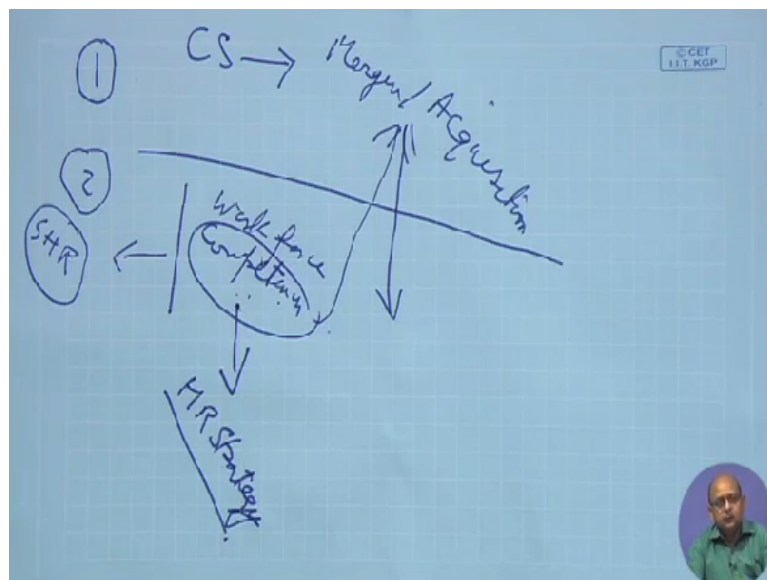 1
CS → Merger/Acquisition
© CET
I.I.T. KGP
2
Workforce
Competencies
SHR
HR Strategy